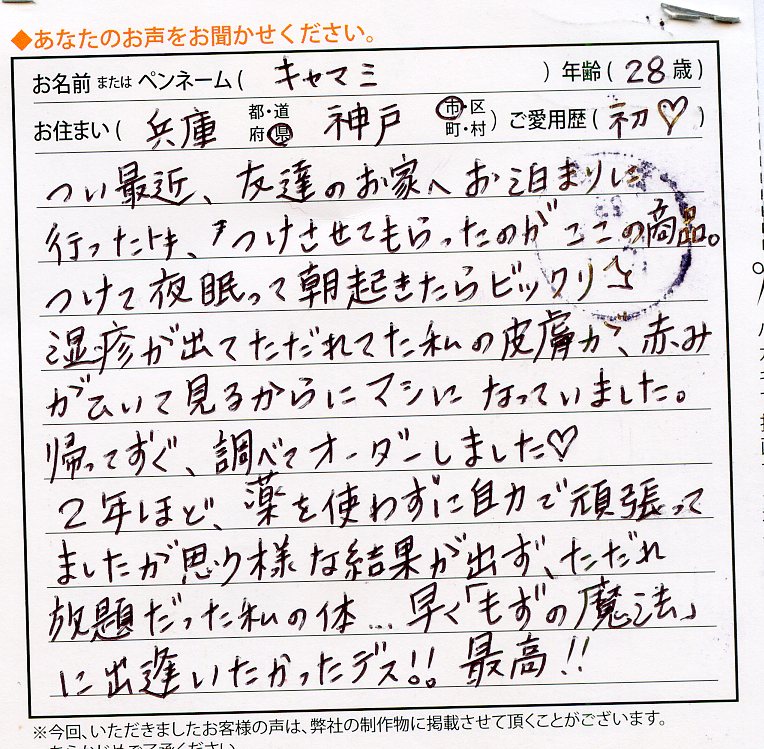 ◆あなたのお声をお聞かせください。
お名前 または ペンネーム( キャマミ ) 年齢( 28 歳)
お住まい( 兵庫 都・道 府・県 神戸 市・区 町・村 ) ご愛用歴( 初♡ )
つい最近、友達のお家へお泊まりに
行った時、つけさせてもらったのがここの商品。
つけて夜眠って朝起きたらビックリ
湿疹が出てただれてた私の皮膚が、赤み
がひいて見るからにマシになっていました。
帰ってすぐ、調べてオーダーしました♡
2年ほど、薬を使わずに自力で頑張って
ましたが思う様な結果が出ず、ただれ
放題だった私の体…早く「もずの魔法」
に出逢いたかったデス!! 最高!!
※今回、いただきましたお客様の声は、弊社の制作物に掲載させて頂くことがございます。
あらかじめご了承ください